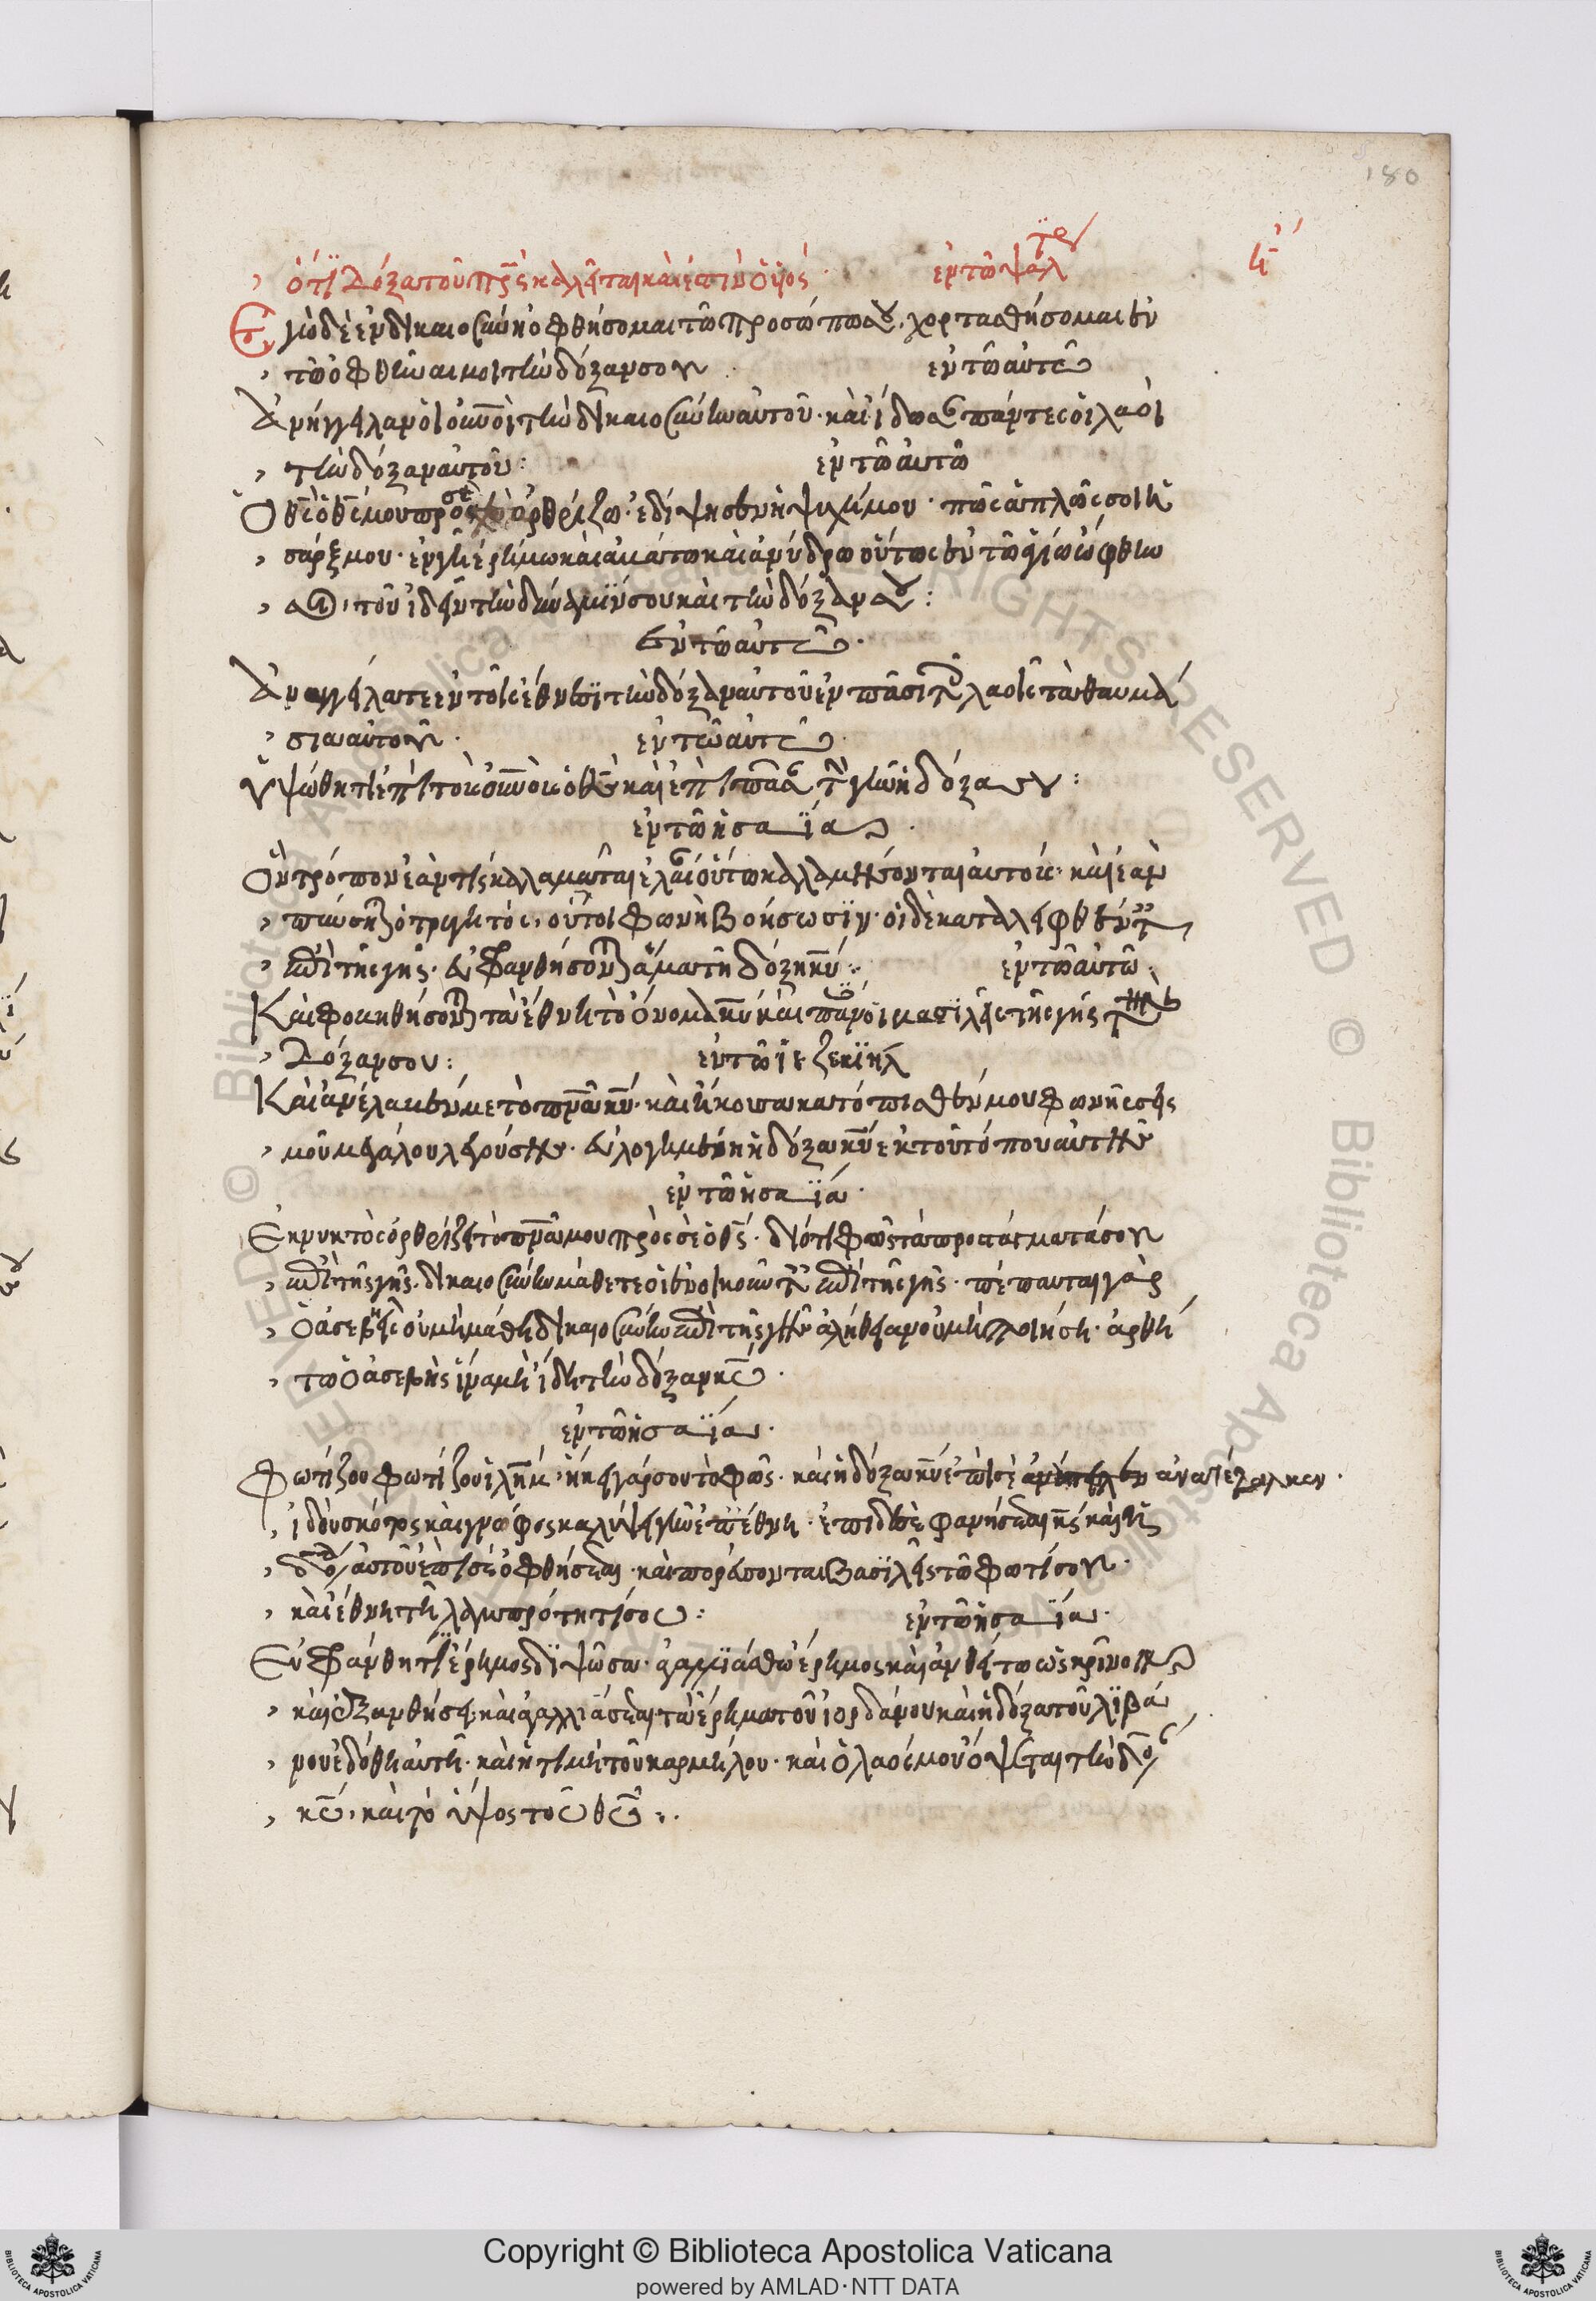 180
ὅτι δόξα τοῦ πρς ἐκαλεῖται καὶ ἔστιν ὁ υἱός· ἐν τῷ ψαλτ
Ἐγὼ δὲ ἐν δικαιοσύνῃ ὀφθήσομαι τῷ προσώπῳ σου, χορτασθήσομαι ἐν
τῷ ὀφθῆναί μοι τὴν δόξαν σου· ἐν τῷ αὐτῷ
Ἀνήγγειλαν οἱ οὐνοὶ τὴν δικαιοσύνην αὐτοῦ· καὶ ἴδωσ πάντες οἱ λαοὶ
τὴν δόξαν αὐτοῦ: ἐν τῷ αὐτῷ
Ὁ θς ὁ θς μου πρὸς σὲ ὀρθρίζω· ἐδίψησέν σε ἡ ψυχή μου· ποσαπλῶς σοι ἡ
σάρξ μου· ἐν γῇ ἐρήμῳ καὶ ἀβάτῳ καὶ ἀνύδρῳ οὕτως ἐν τῷ ἁγίῳ ὤφθην
σοι· τοῦ ἰδεῖν τὴν δύναμίν σου καὶ τὴν δόξαν σου:
ἐν τῷ αὐτῷ·
Ἀναγγείλατε ἐν τοῖς ἔθνεσι τὴν δόξαν αὐτοῦ ἐν πᾶσι τοῖς λαοῖς τὰ θαυμά
σια αὐτοῦ· ἐν τῷ αὐτῷ
Ὑψώθητι ἐπὶ τοὺς οὐνοὺς ὁ θς καὶ ἐπὶ πᾶσαν τὴν γῆν ἡ δόξα σου:
ἐν τῷ ἡσαΐα·
Ὃν τρόπον ἐάν τις καλαμᾶται ἐλαίαν οὕτω καλαμήσονται αὐτούς· καὶ ἐὰν
παύσηται ὁ τρυγητός, οὗτοι φωνῇ βοήσωσιν· οἱ δὲ καταλειφθέντες
ἐπὶ τῆς γῆς· εὐφρανθήσονται ἅμα τῇ δόξῃ κυ: ἐν τῷ αὐτῷ
Καὶ φοβηθήσονται τὰ ἔθνη τὸ ὄνομα κυ καὶ πάντες οἱ βασιλεῖς τῆς γῆς τὴν
δόξαν σου: ἐν τῷ ἰεζεκιὴλ
Καὶ ἀνέλαβέν με τὸ πνα κυ· καὶ ἤκουσα κατόπισθέν μου φωνῆς σεισ
μοῦ μεγάλου λεγούσης· εὐλογημένη ἡ δόξα κυ ἐκ τοῦ τόπου αὐτῆς
ἐν τῷ ἡσαΐα·
Ἐκ νυκτὸς ὀρθρίζει τὸ πνα μου πρὸς σὲ ὁ θς· διότι φῶς τὰ προστάγματά σου
ἐπὶ τῆς γῆς· δικαιοσύνην μάθετε οἱ ἐνοικοῦντες ἐπὶ τῆς γῆς· πέπαυται γὰρ
ὁ ἀσεβής οὐ μὴ μάθῃ δικαιοσύνην ἐπὶ τῆς γῆς ἀλήθειαν οὐ μὴ ποιήσῃ· ἀρθή
τω ὁ ἀσεβὴς ἵνα μὴ ἴδῃ τὴν δόξαν κυ·
ἐν τῷ ἡσαΐα·
Φωτίζου φωτίζου ἱλημ· ἥκει γάρ σου τὸ φῶς· καὶ ἡ δόξα κυ ἐπὶ σὲ ἀνατέταλκεν·
ἰδοὺ σκότος καὶ γνόφος καλύψει γῆν ἐπ' ἔθνη· ἐπὶ δὲ σὲ φανήσεται κς καὶ ἡ
δόξα αὐτοῦ ἐπὶ σὲ ὀφθήσεται· καὶ πορεύσονται βασιλεῖς τῷ φωτί σου·
καὶ ἔθνη τῇ λαμπρότητί σου: ἐν τῷ ἡσαΐα·
Εὐφράνθητι ἔρημος διψῶσα· ἀγαλλιάσθω ἔρημος καὶ ἀνθείτω ὡς κρίνον
καὶ ἐξανθήσει καὶ ἀγαλλιάσεται τὰ ἔρημα τοῦ ἰορδάνου καὶ ἡ δόξα τοῦ λιβά
νου ἐδόθη αὐτῇ· καὶ ἡ τιμὴ τοῦ καρμήλου· καὶ ὁ λαός μου ὄψεται τὴν δόξαν
κυ, καὶ τὸ ὕψος τοῦ θυ:.
Copyright © Biblioteca Apostolica Vaticana
powered by AMLAD·NTT DATA